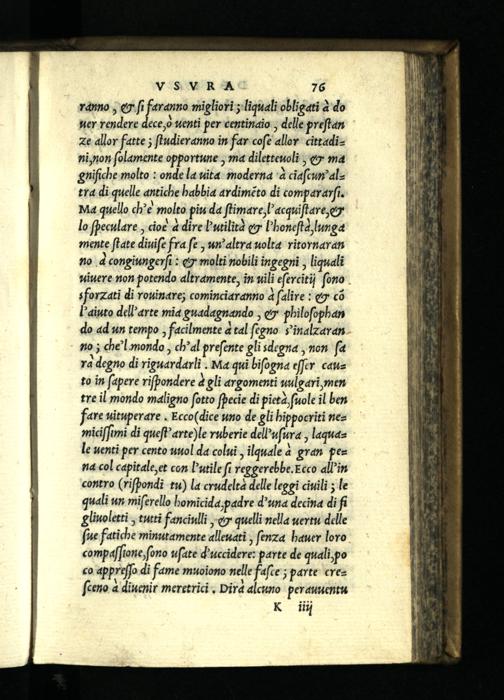 VSVRA 76
ranno, & si faranno migliori; liquali obligati à do
uer rendere dece, ò uenti per centinaio, delle prestan
ze allor fatte; studieranno in far cose allor cittadi=
ni, non solamente opportune, ma diletteuoli, & ma
gnifiche molto: onde la uita moderna à ciascun'al=
tra di quelle antiche habbia ardimẽto di compararsi.
Ma quello ch'è molto piu da stimare, l'acquistare, &
lo speculare, cioè à dire l'utilità & l'honestà, lunga
mente state diuise fra se, un'altra uolta ritornaran
no à congiungersi: & molti nobili ingegni, liquali
uiuere non potendo altramente, in uili esercitij sono
sforzati di rouinare; cominciaranno à salire: & cõ
l'aiuto dell'arte mia guadagnando, & philosophan
do ad un tempo, facilmente à tal segno s'inalzaran=
no; che'l mondo, ch'al presente gli sdegna, non sa
rà degno di riguardarli. Ma qui bisogna esser cau=
to in sapere rispondere à gli argomenti uulgari, men
tre il mondo maligno sotto specie di pietà, suole il ben
fare uituperare. Ecco (dice uno de gli hippocriti ne=
micissimi di quest'arte) le ruberie dell'usura, laqua=
le uenti per cento uuol da colui, ilquale à gran pe=
na col capitale, et con l'utile si reggerebbe. Ecco all'in
contro (rispondi tu) la crudeltà delle leggi ciuili; le
quali un miserello homicida, padre d'una decina di fi
gliuoletti, tutti fanciulli, & quelli nella uertu delle
sue fatiche minutamente alleuati, senza hauer loro
compassione, sono usate d'uccidere: parte de quali, po
co appresso di fame muoiono nelle fasce; parte cre=
sceno à diuenir meretrici. Dirà alcuno perauuentu
K iiij